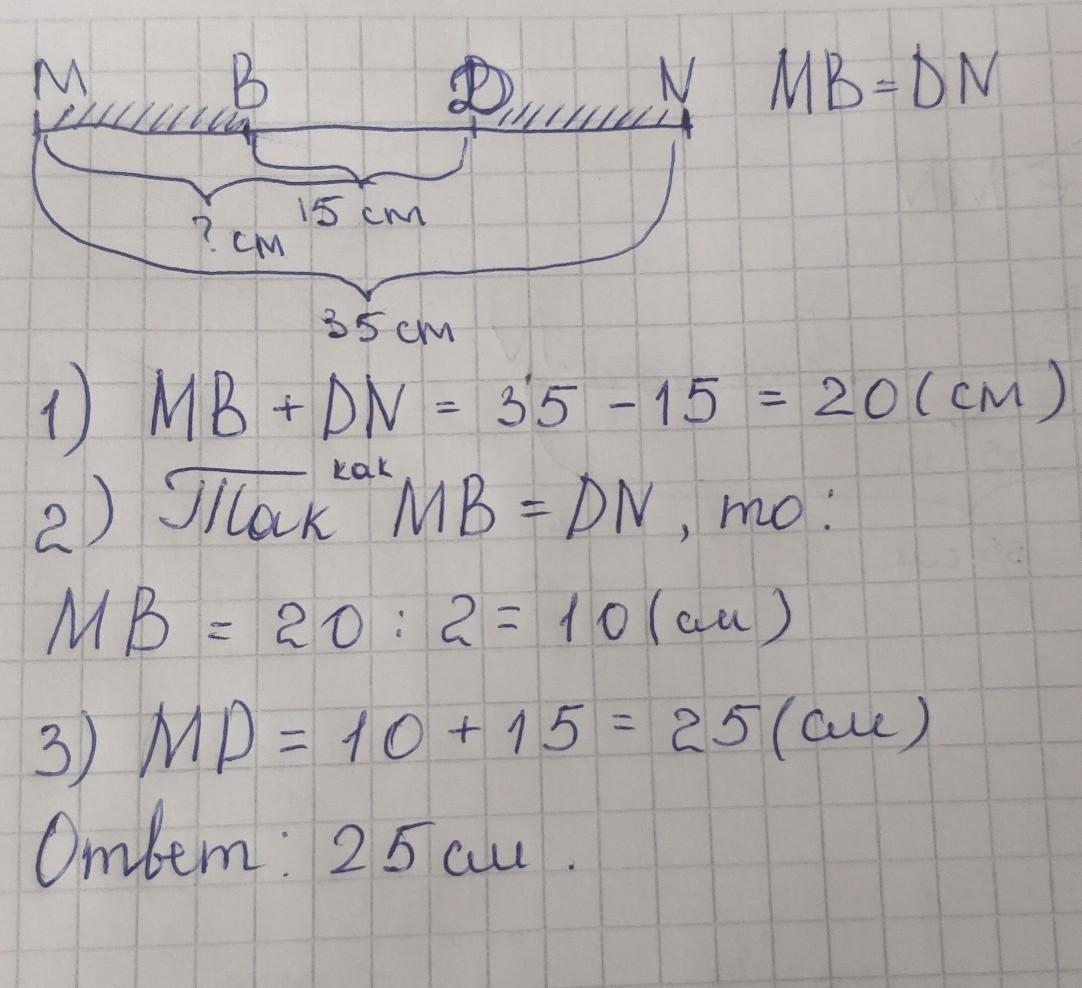 M B D N MB = DN
15 см
? см
35 см
1) MB + DN = 35 - 15 = 20 (см)
2) Так как MB = DN, то:
MB = 20 : 2 = 10 (см)
3) MD = 10 + 15 = 25 (см)
Ответ: 25 см.